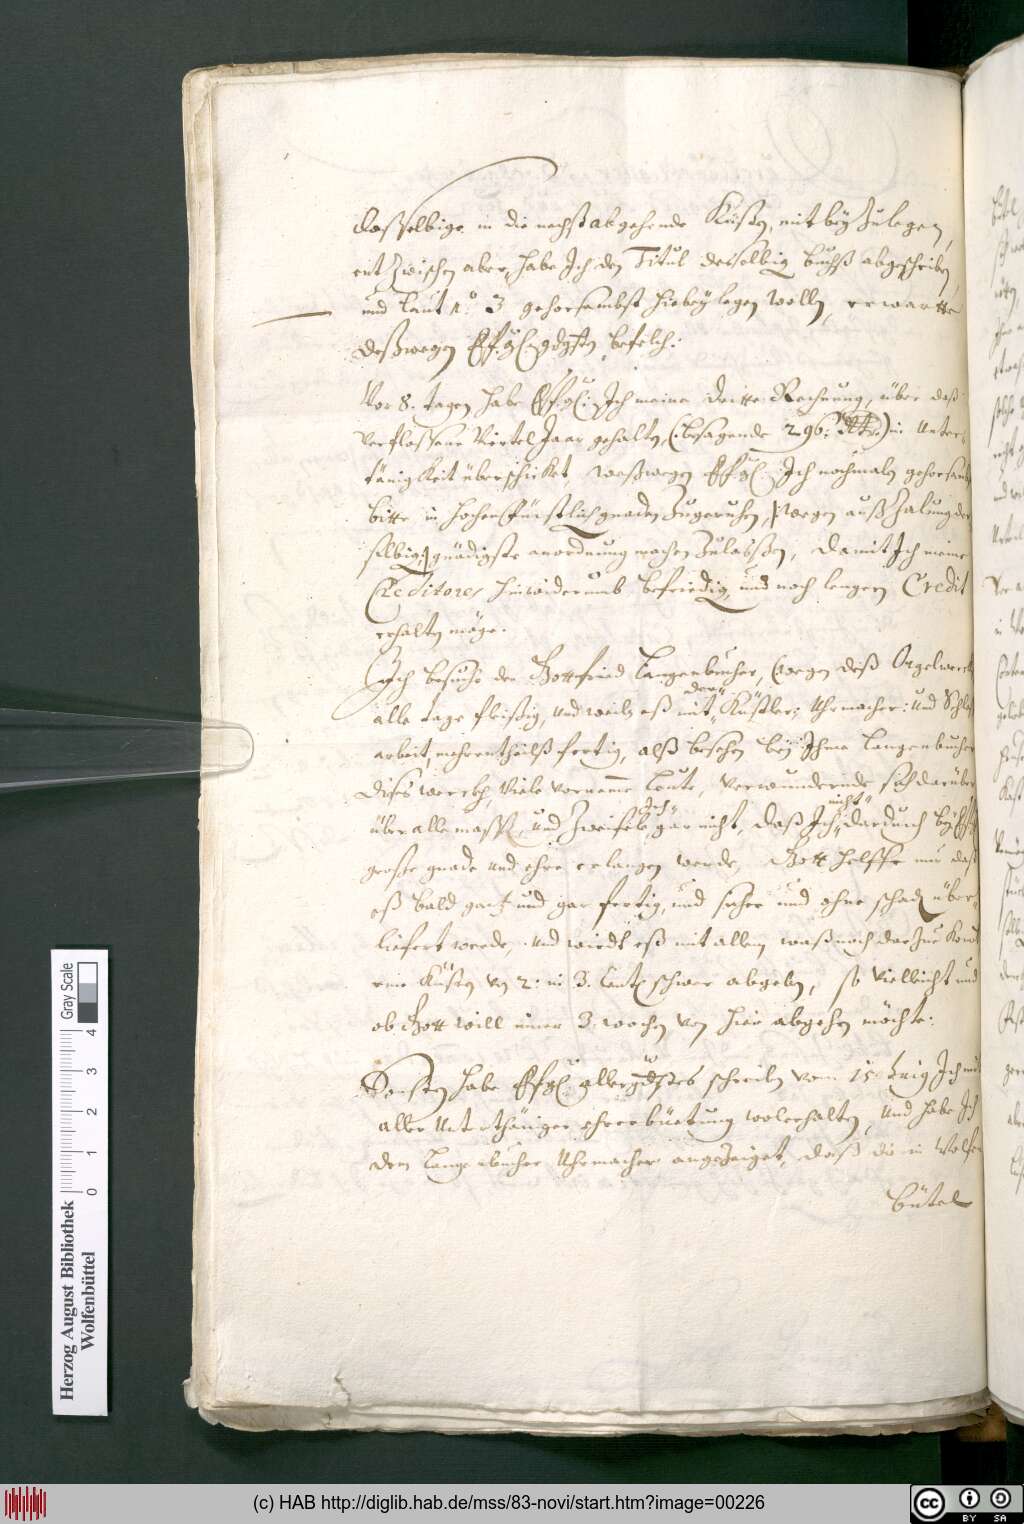 daßselbige in die nechst abgehende Küsten, mit bey Zulegen,
ent Zwischen aber, habe Ich den Titul desselbig Buchß abgeschriben,
und laut N.o 3 gehorsambst hiebey legen wolln, erwartte
deßwegen Efg: gdgsten befelch:
Vor 8. tagen habe Efg: Ich meine dritte Rechnung, über daß
verflossene Virtel Jaar gehalten, (: besagende 296: Rtr:) in Unter
tänigkeit überschicket, weßwegen Efg: Ich nochmaln gehorsambst
bitte in hochen Fürstlich gnaden Zugeruhen, wegen auß Zalung der
selbig, gnädigste anordnung machen Zulassen, damit Ich meine
Creditores hinwiderumb befriedig, und noch lengern Credit
erhalten möge.
Ich besuche den Gottfried Langenbucher, wegen diß Orgelwerck
alle tage fleißig, und weiln eß mit der Küstler: Uhrmacher: und Schloß
arbeit, mehrentheilß fertig, alß besehen bey Ihme Langenbucher
dises werckh, Viele vorneme leute, verwundernde sich darüber
über alle mass, und Zweifele Ich gar nicht, daß Ich nicht dardurch bey Efg
grosse gnade und ehre erlangen werde, Gott helffe nur daß
eß bald gantz und gar fertig, und sicher und ohne schaden über
liefert werde, und wirdt eß mit allem waß noch dar Zue komt
eine Küsten von 2: in 3. Cent: schwer abgeben, so vielleicht und
ob Gott will inner 3 wochen von hier abgehen möchte:
Sonsten habe Efg: gdstes schreiben vom 15 Ich mit
aller Unterthäniger ehrerbüetung wol erhalten, und habe Ich
dem Langenbucher Uhrmacher angeZeiget, daß die in Wolfen
bütel
Herzog August Bibliothek
Wolfenbüttel
0 1 2 3 4
Gray Scale
(c) HAB http://diglib.hab.de/mss/83-novi/start.htm?image=00226
cc BY SA